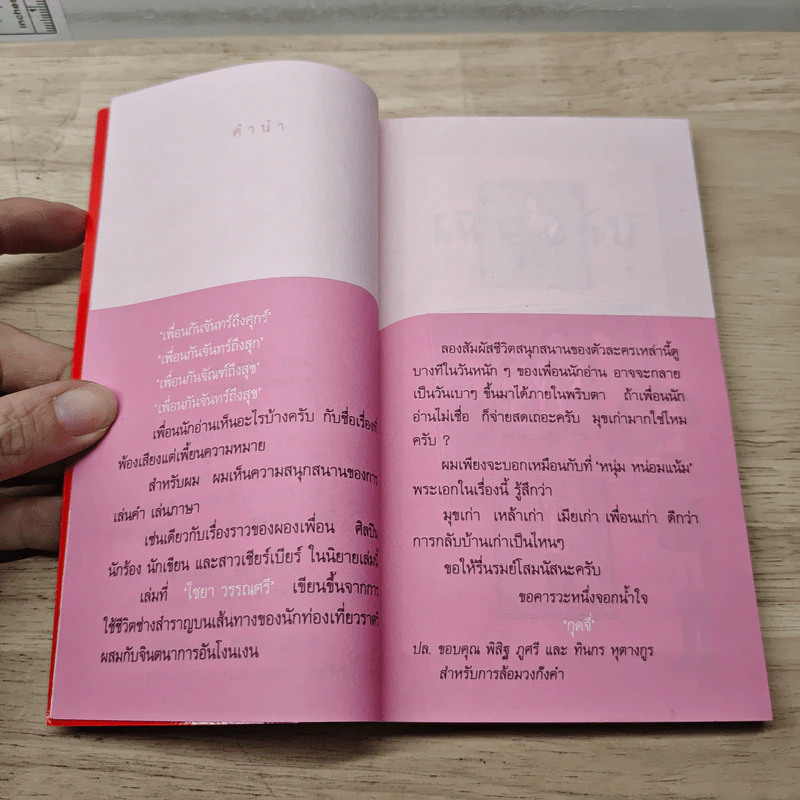 inches
1
คำนำ
'เพื่อนกันจันทร์ถึงศุกร์'
'เพื่อนกันจันทร์ถึงสุก'
'เพื่อนกันจัณฑ์ถึงสุข'
'เพื่อนกันจันทร์ถึงสุข'
เพื่อนนักอ่านเห็นอะไรบ้างครับ กับชื่อเรื่องที่
พ้องเสียงแต่เพี้ยนความหมาย
สำหรับผม ผมเห็นความสนุกสนานของการ
เล่นคำ เล่นภาษา
เช่นเดียวกับเรื่องราวของผองเพื่อน ศิลปิน
นักร้อง นักเขียน และสาวเชียร์เบียร์ ในนิยายเล่มนี้
เล่มที่ 'ไชยา วรรณศรี' เขียนขึ้นจากการ
ใช้ชีวิตช่างสำราญบนเส้นทางของนักท่องเที่ยวราตรี
ผสมกับจินตนาการอันโงนเงน
ลองสัมผัสชีวิตสนุกสนานของตัวละครเหล่านี้ดู
บางทีในวันหนัก ๆ ของเพื่อนนักอ่าน อาจจะกลาย
เป็นวันเบาๆ ขึ้นมาได้ภายในพริบตา ถ้าเพื่อนนัก
อ่านไม่เชื่อ ก็จ่ายสดเถอะครับ มุขเก่ามากใช่ไหม
ครับ ?
ผมเพียงจะบอกเหมือนกับที่ 'หนุ่ม หน่อมแน้ม'
พระเอกในเรื่องนี้ รู้สึกว่า
มุขเก่า เหล้าเก่า เมียเก่า เพื่อนเก่า ดีกว่า
การกลับบ้านเก่าเป็นไหนๆ
ขอให้รื่นรมย์โสมนัสนะครับ
ขอคารวะหนึ่งจอกน้ำใจ
'กุดจี่'
ปล. ขอบคุณ พิสิฐ ภูศรี และ ทินกร หุตางกูร
สำหรับการล้อมวงก๊งคำ